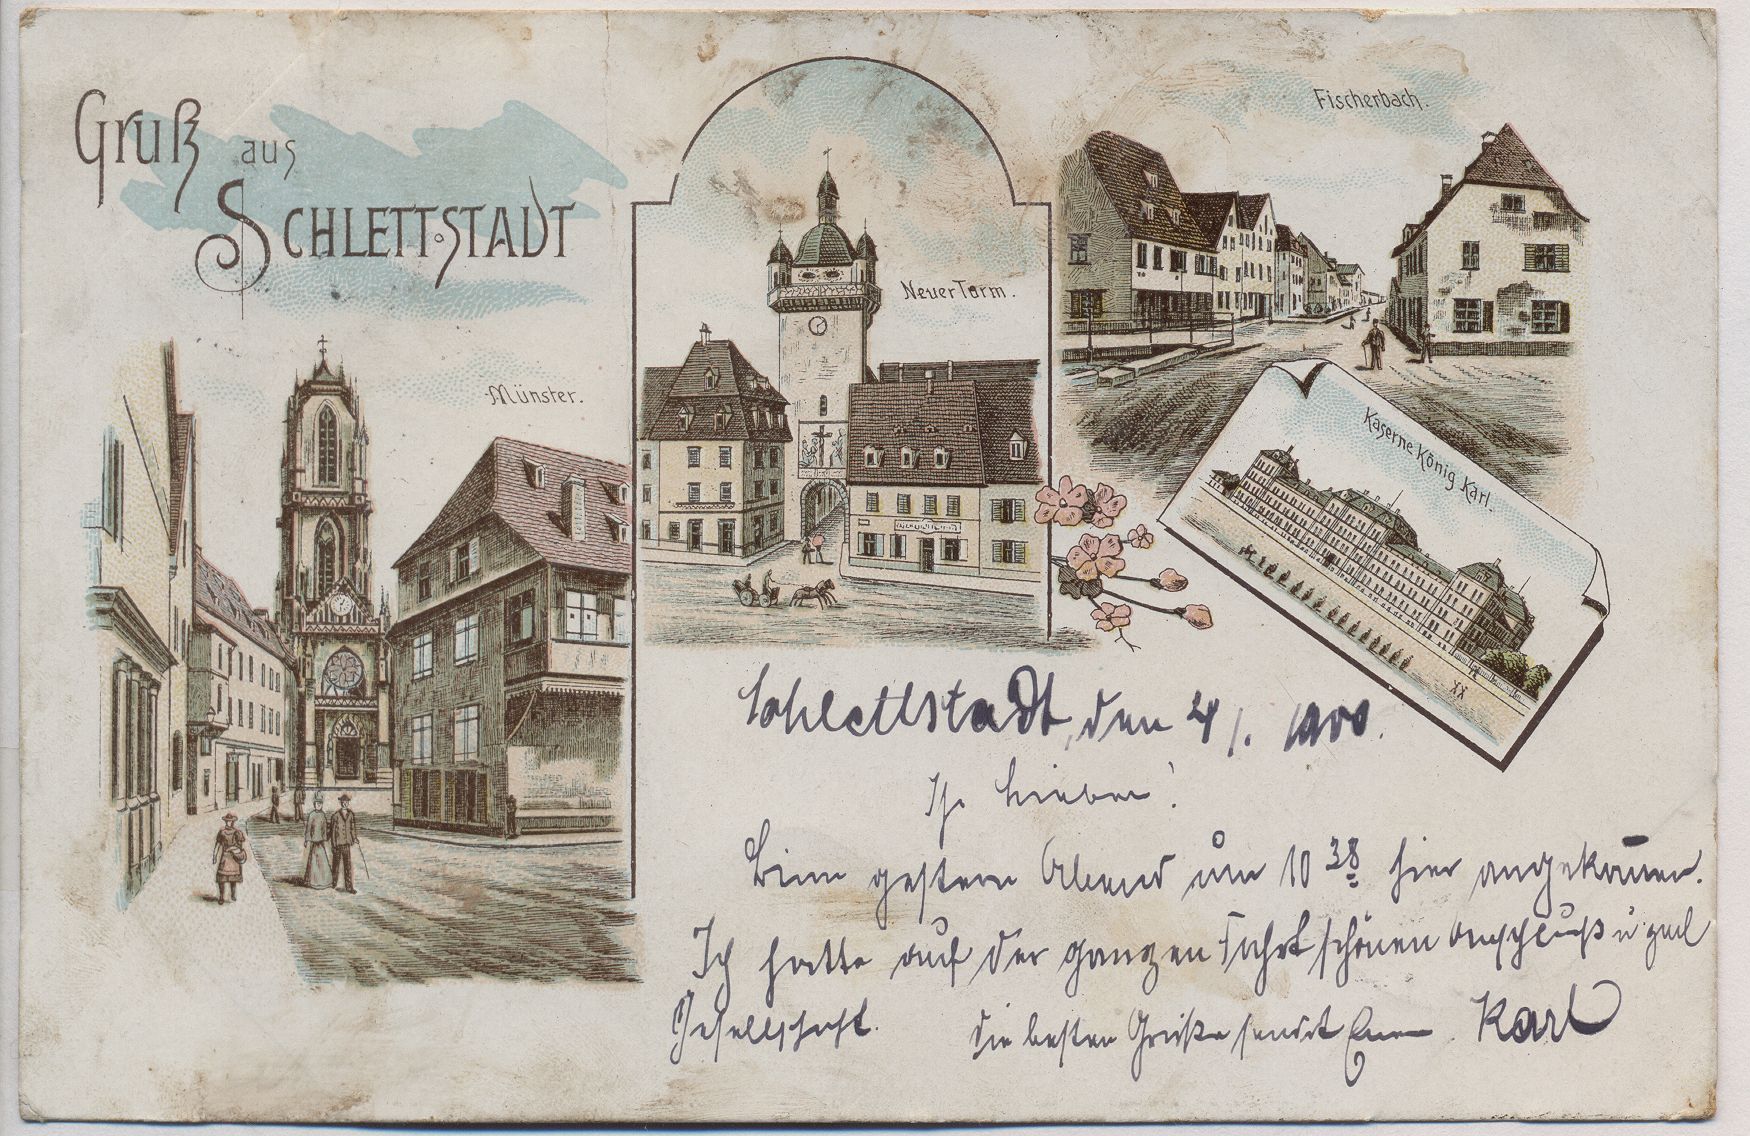 Gruß aus
Schlettstadt
Münster.
Neuer Torm.
Fischerbach.
Kaserne König Karl.
Schlettstadt, den 4/1. 1900.
Ihr Lieben!
Binn gestern Abend um 10 38 hier angekom̅en.
Ich hatte auf der ganzen Fahrt schönen Anschluß u gute
Gesellschaft.
Die besten Grüße sendet Euer Karl